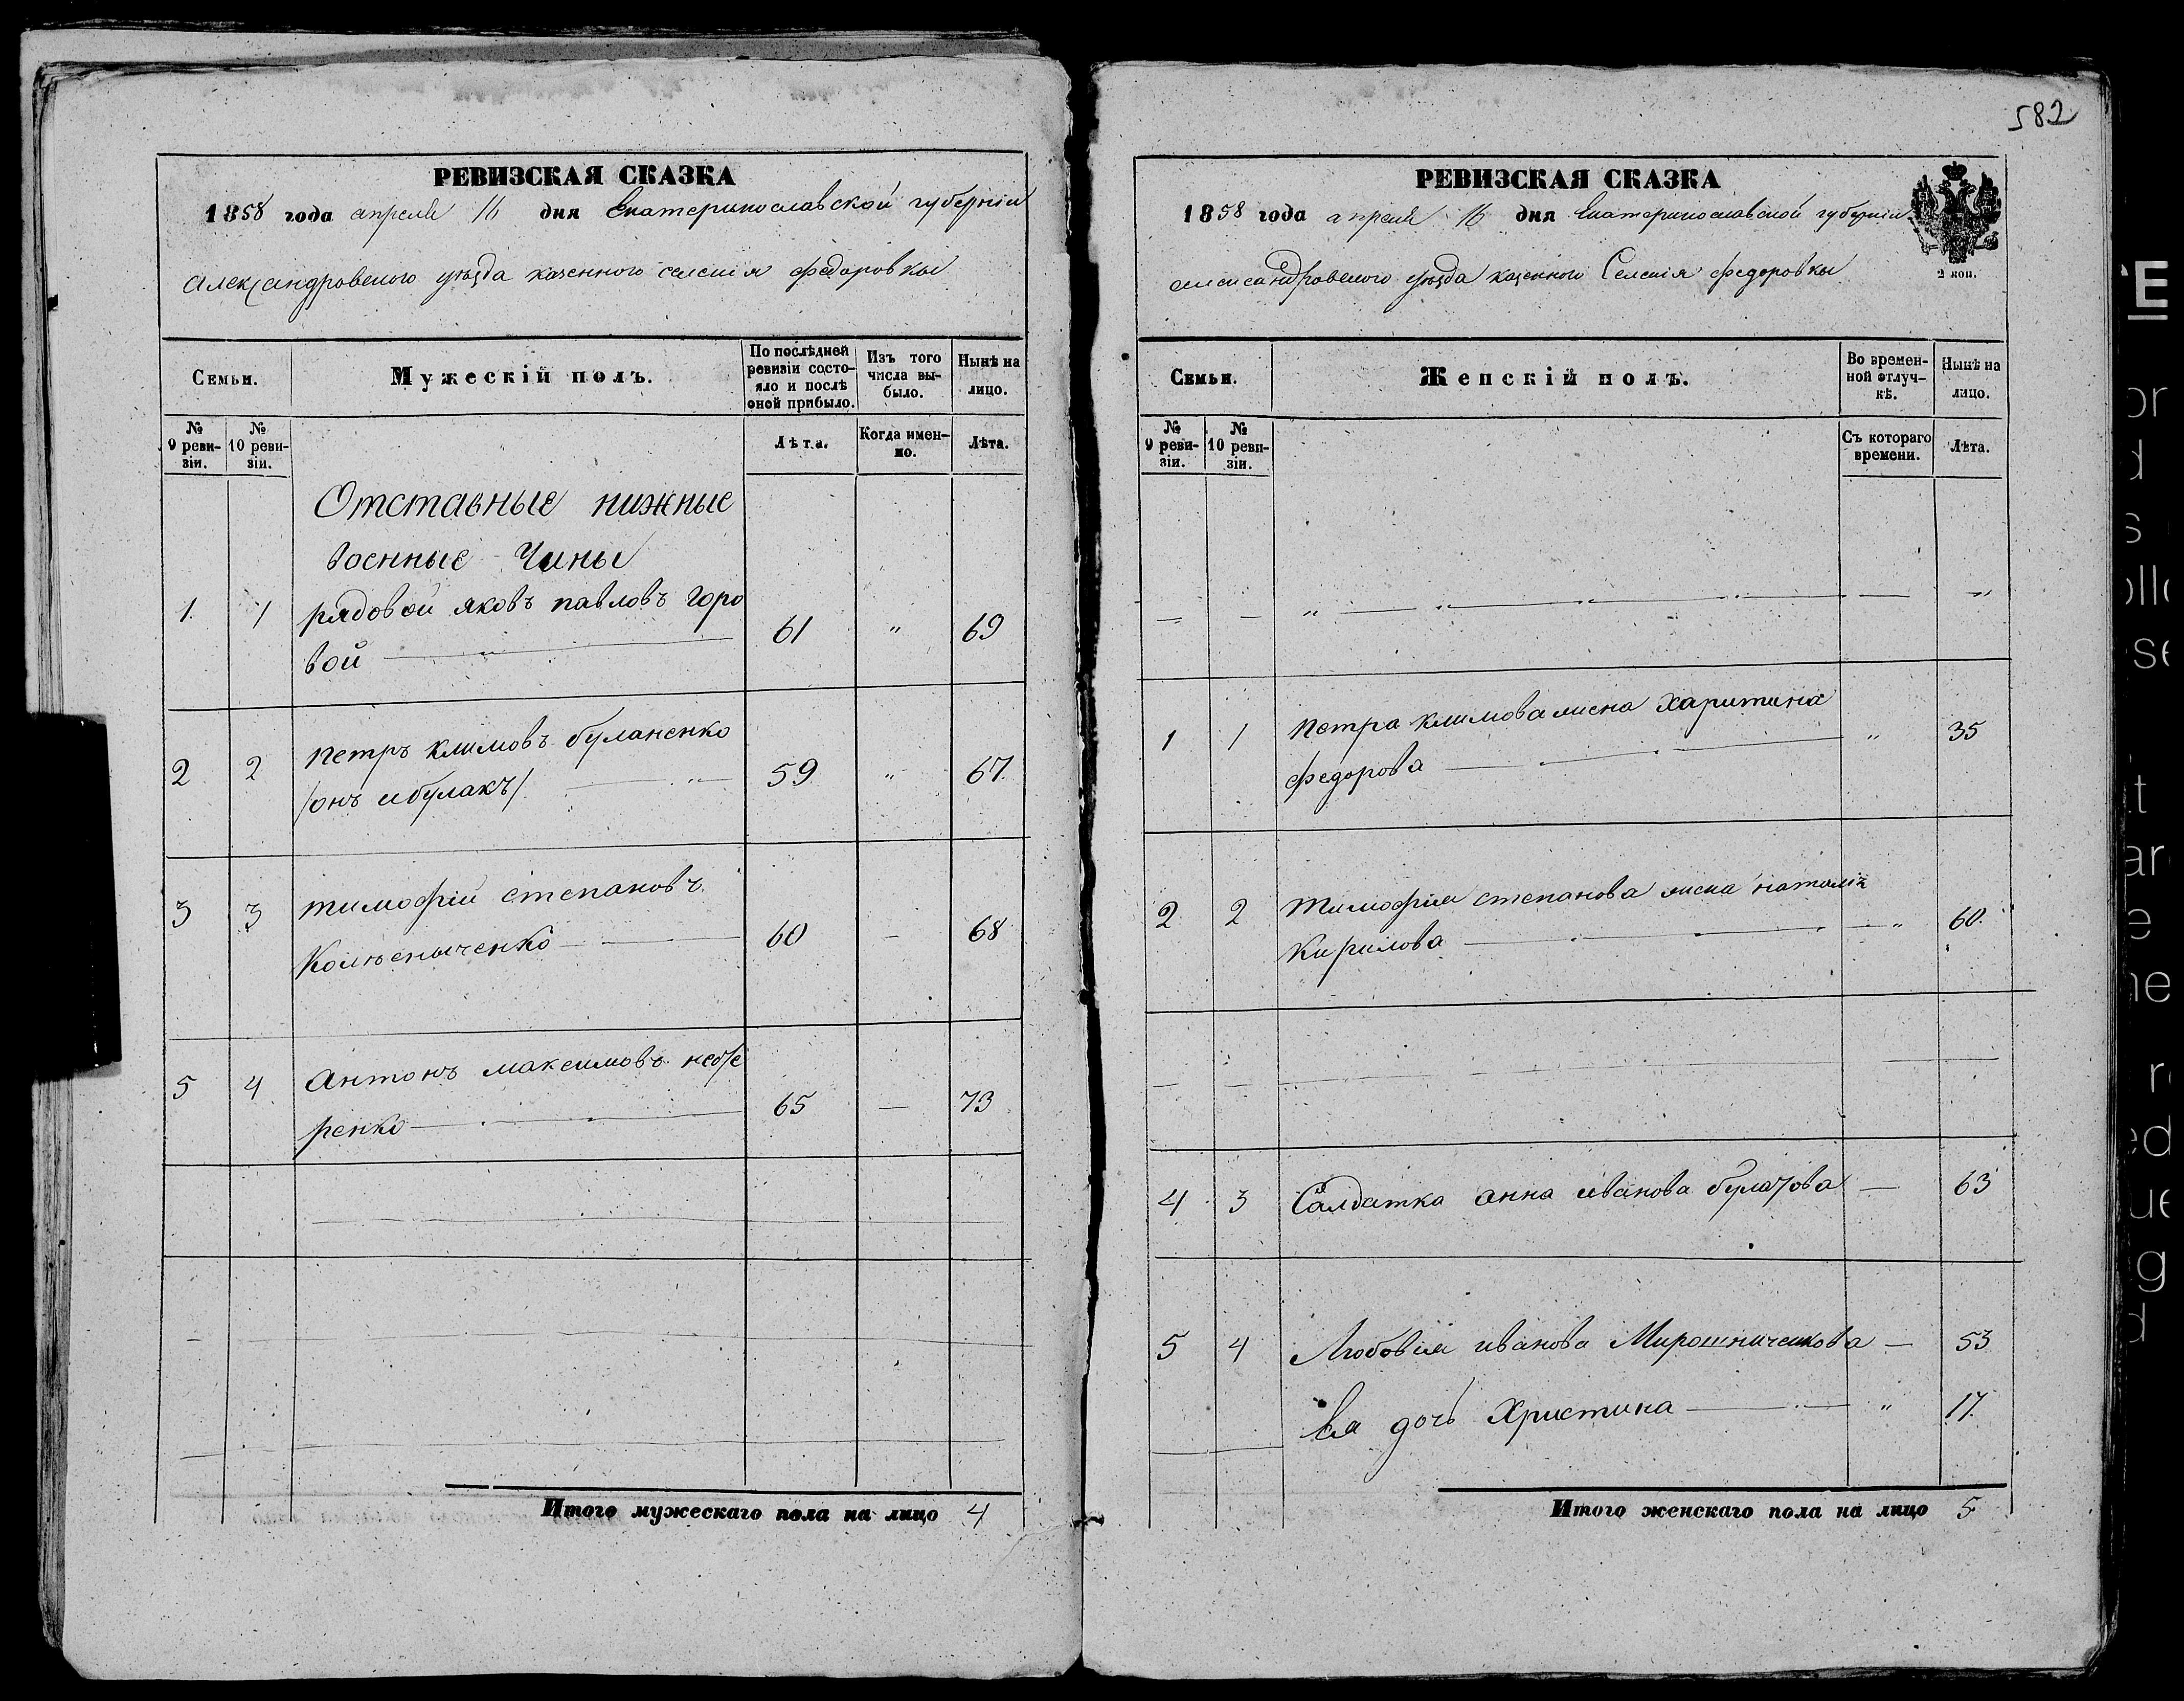 582
РЕВИЗСКАЯ СКАЗКА
1858 года апреля 16 дня Екатеринославской губерніи
Александровского уѣзда казенного селенія федоровки
Семьи.
Мужескій полъ.
По послѣдней ревизіи состояло и послѣ оной прибыло.
Изъ того числа выбыло.
Нынѣ на лицо.
№ 9 ревизіи.
№ 10 ревизіи.
Лѣта.
Когда именно.
Лѣта.
Отставные нижные
военные Чины
1. 1 рядовой яковъ павловъ Горо
вой 61 " 69
2 2 петръ климовъ буланенко
/онъ ибулакъ/ 59 " 67.
3 3 тимофій степановъ
60 — 68
5 4 Антонъ максимовъ небе
ренко 65 — 73
Итого мужескаго пола на лицо 4
РЕВИЗСКАЯ СКАЗКА
1858 года апреля 16 дня Екатеринославской губерніи
александровского уѣзда казенного Селенія федоровки
2 коп.
Семьи.
Женскій полъ.
Во временной отлучкѣ.
Нынѣ на лицо.
№ 9 ревизіи.
№ 10 ревизіи.
Съ котораго времени.
Лѣта.
1 1 Петра климова жена Харитина
федорова " 35
2 2 Тимофія степанова жена наталія
Кирилова " 60.
4 3 Салдатка анна иванова — 63
5 4 Любовія иванова Мирошниченкова — 53
Ея дочь Христина " 17.
Итого женскаго пола на лицо 5